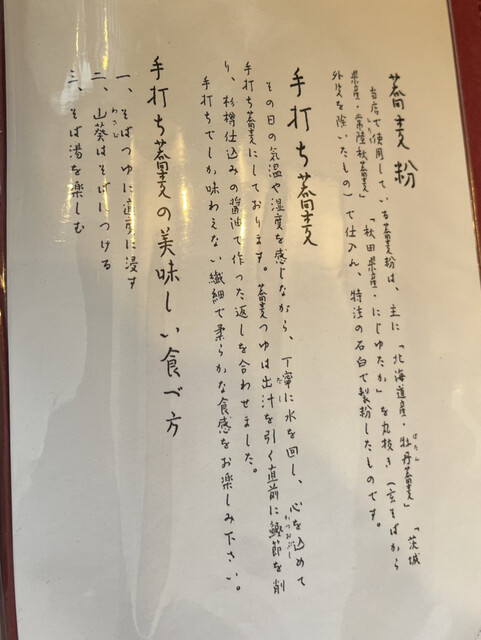 蕎麦粉
当店で使用している蕎麦粉は、主に「北海道産・牡丹蕎麦」「茨城
ぼたん
県産・常陸秋蕎麦」「秋田県産・にじゆたか」を丸抜き（玄そばから
外皮を除いたもの）で仕入れ、特注の石臼で製粉したものです。
手打ち蕎麦
その日の気温や湿度を感じながら、丁寧に水を回し、心を込めて
手打ち蕎麦にしております。蕎麦つゆは出汁を引く直前に鰹節を削
かつおぶし
り、杉樽仕込みの醤油で作った返しを合わせました。
手打ちでしか味わえない繊細で柔らかな食感をお楽しみ下さい。
手打ち蕎麦の美味しい食べ方
一、そばつゆに適度に浸す
二、山葵はそばにつける
わさび
三、そば湯を楽しむ